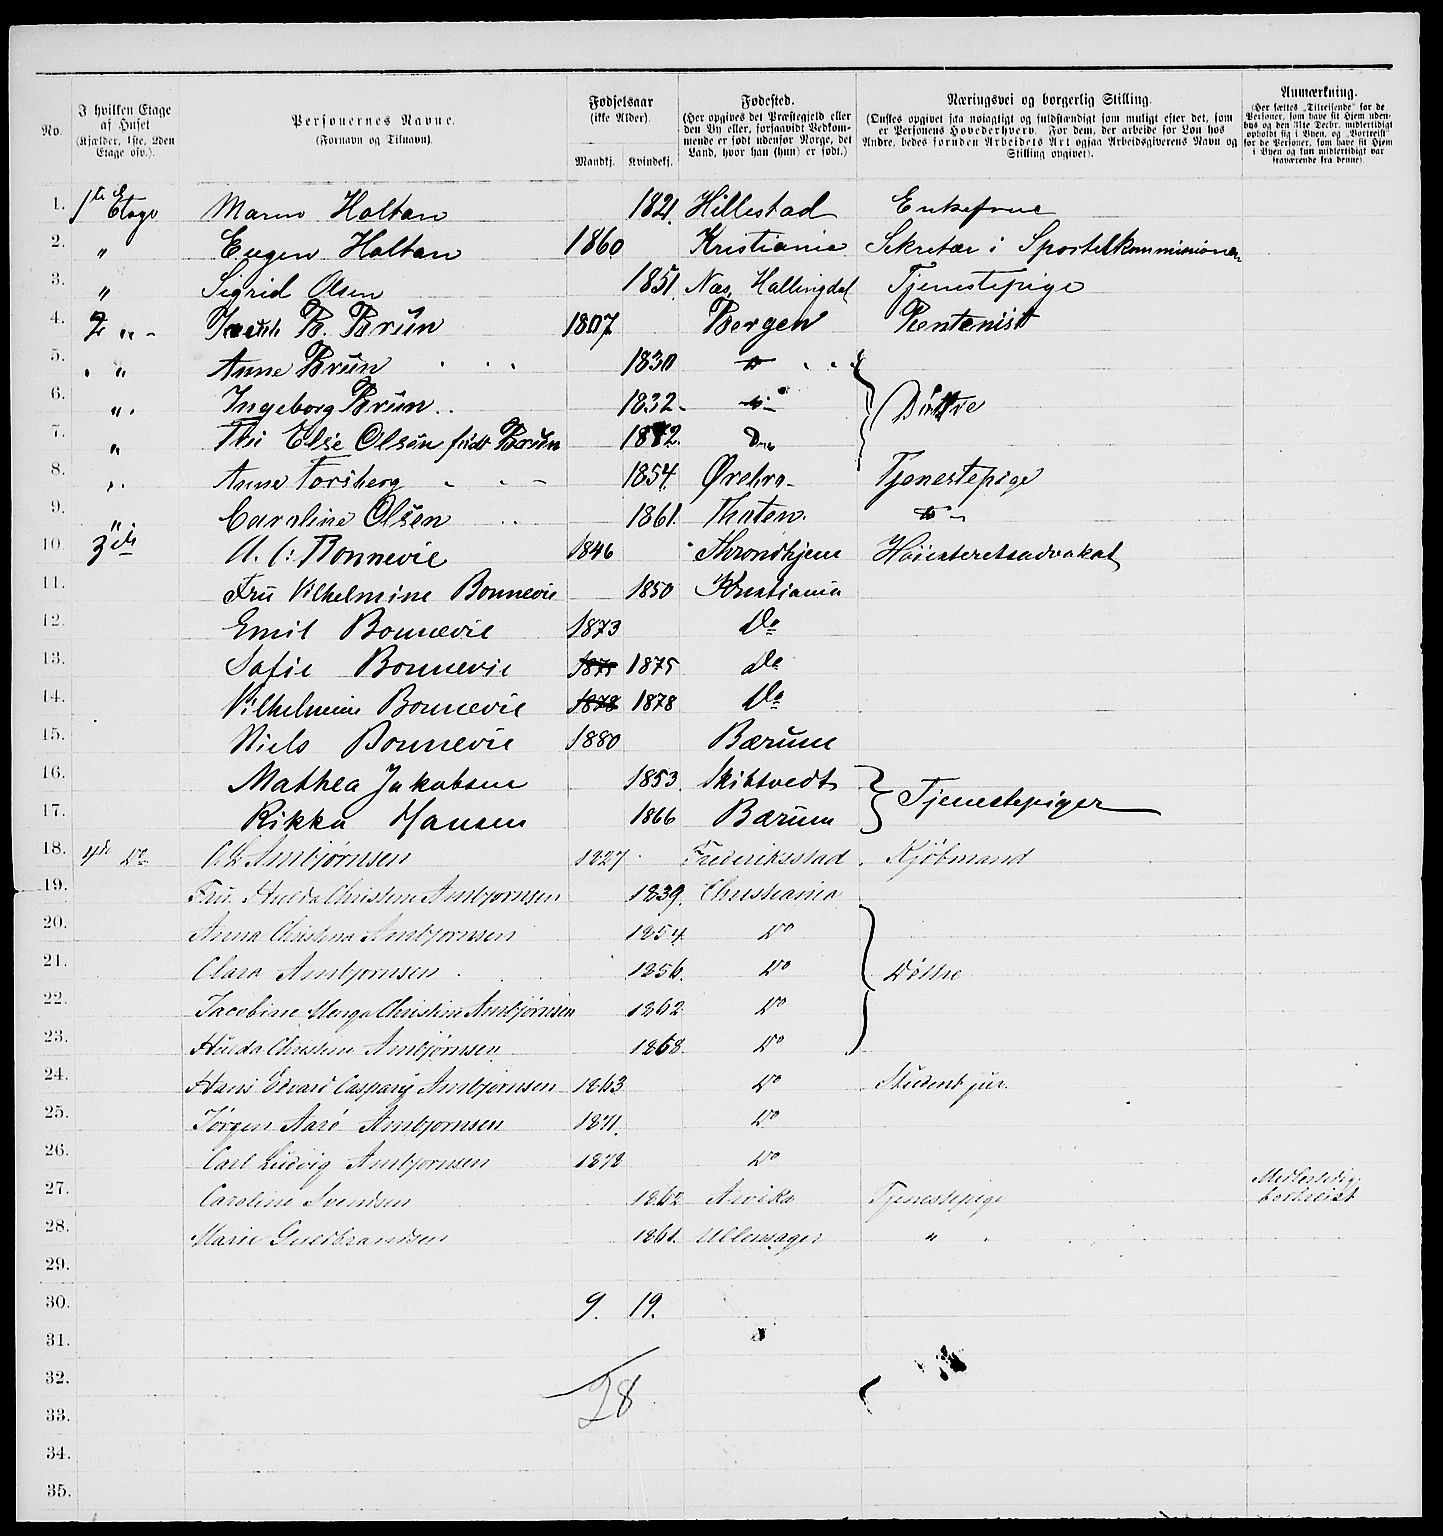 No.
I hvilken Etage af Huset (Kjælder, 1ste, 2den Etage osv.).
Personernes Navne. (Fornavn og Tilnavn).
Fødselsaar (ikke Alder). Mandkj. Kvindekj.
Fødested. (Her opgives det Præstegjeld eller den By eller, forsaavidt Vedkommende er født udenfor Norge, det Land, hvor han (hun) er født.)
Næringsvei og borgerlig Stilling. (Ønskes opgivet saa nøiagtigt og fuldstændigt som muligt efter det, som er Personens Hovederhverv. For dem, der arbeide for Løn hos Andre, bedes foruden Arbeidets Art ogsaa Arbeidsgiverens Navn og Stilling opgivet).
Anmærkning. (Her sættes „Tilreisende" for de Personer, som have sit Hjem udenbys og den 31te Decbr. midlertidigt opholdt sig i Byen, og „Bortreist" for de Personer, som have sit Hjem i Byen og kun midlertidigt var fraværende fra denne).
1. 1ste Etage Maren Holtan 1821. Hillestad Enkefrue
2. „ Eugen Holtan 1860 Kristiania Sekretær i Sportelkommissionen
3. „ Sigrid Olsen 1851. Næs, Hallingdal Tjenestepige
4. 2 „ - B. Brün 1807. Bergen Rentenist
5. „ Anne Brün 1830 do
6. „ Ingeborg Brün 1832 do Døttre
7. „ Else Olsen født Brün Do
8. „ Anna Forsberg 1854. Ørebro Tjenestepige
9. „ Caroline Olsen 1861. Thoten. do
10. 3die A. C: Bonnevie 1846 Throndhjem Høiesteretsadvokat
11. Fru Vilhelmine Bonnevie 1850 Kristiania
12. Emil Bonnevie 1873 Do
13. Sofie Bonnevie 1875 1875 do
14. Vilhelmine Bonnevie 1878 1878 Do
15. Niels Bonnevie 1880 Bærum
16. Mathea Jakobsen 1853. Skibtvedt
17. Rikka Hansen 1866 Bærum Tjenestepiger
18. 4de Do Ambjørnsen 1827 Frederiksstad Kjøbmand
19. Fru. Hulda Christine Ambjørnsen 1839. Christiania
20. Anna Christina Ambjørnsen 1854. Do
21. Clara Ambjørnsen 1856. Do Døttre
22. Jacobine Christine Ambjørnsen 1862 Do
23. Hulda Christine Ambjørnsen 1868. Do
24. Hans Edvard Caspary Ambjørnsen 1863 Do Student jur.
25. Jørgen Aarø Ambjørnsen 1871. Do
26. Carl Ludvig Ambjørnsen 1872 Do
27. Caroline Svendsen 1862 Arvika Tjenestepige Midlertidig bortreist
28. Marie Guldbrandsen 1861. Ullensager „
29.
30. 9. 19.
31.
32.
28
33.
34.
35.